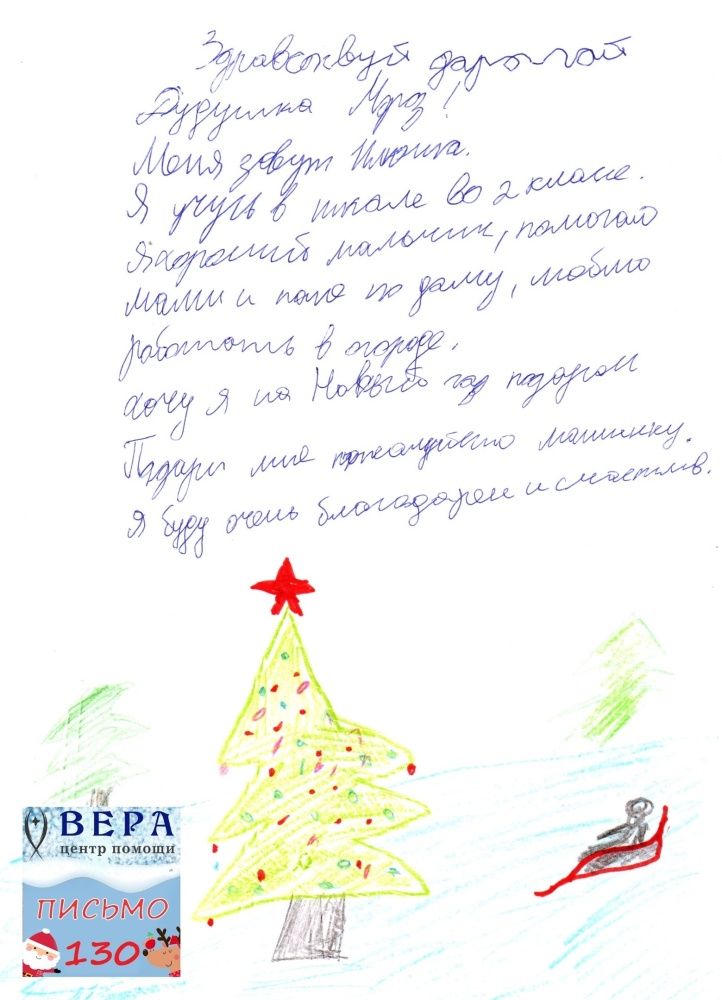 Здравсвквуй дарогой
Дудушка Мроз!
Моня зовут Илюша.
Я учусь в шкале во 2 класе.
Я хороший мальчик, помогаю
мами и папе по даму, люблю
работать в огороде.
хочу я на Новый год подарок
Подари мне пожалуйсто машинку.
Я буду очень благадарен и счастлив.
ВЕРА
центр помощи
ПИСЬМО
130